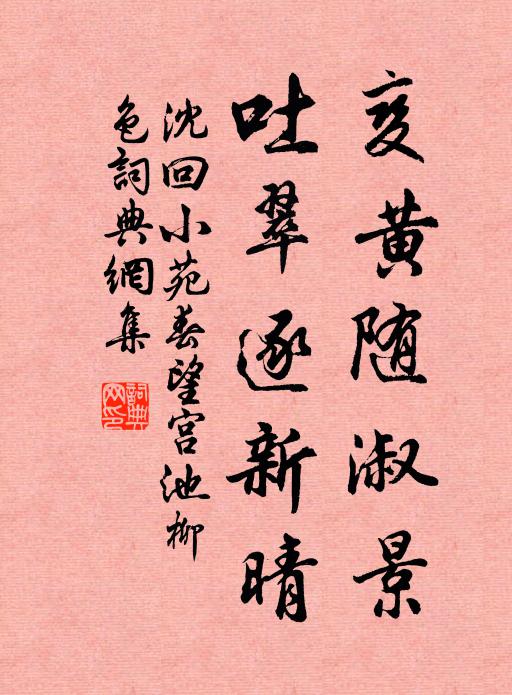 变黄随淑景
吐翠逐新晴
沈回小苑春望宫池柳
色詞典網集
詞典
网印